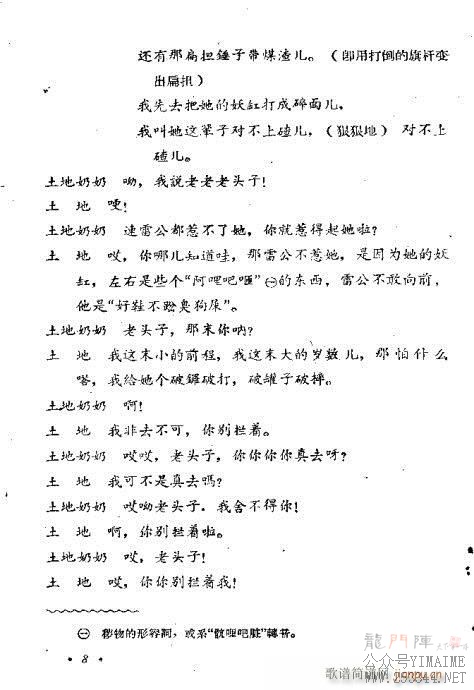 还有那扁担錘子带煤渣儿。（即用打倒的旗杆变
出扁担）
我先去把她的妖缸打成碎面儿，
我叫她这辈子对不上碴儿，（狠狠地）对不上
碴儿。
土地奶奶　呦，我説老老老头子！
土　地　哽！
土地奶奶　連雷公都惹不了她，你就惹得起她啦？
土　地　哎，你哪儿知道哇，那雷公不惹她，是因为她的妖
缸，左右是些个“阿哩吧咂”㊀的东西，雷公不敢向前，
他是“好鞋不跐臭狗屎”。
土地奶奶　老头子，那末你呐？
土　地　我这末小的前程，我这末大的岁数儿，那怕什么
嗒，我给她个破鑼破打，破罐子破摔。
土地奶奶　啊！
土　地　我非去不可，你别拦着。
土地奶奶　哎哎，老头子，你你你你真去呀？
土　地　我可不是真去嗎？
土地奶奶　哎呦老头子．我舍不得你！
土　地　啊，你别拦着啦。
土地奶奶　哎，老头子！
土　地　哎，你你别拦着我！
㊀ 秽物的形容詞，或系“骯哩吧脏”轉音。
• 8 •
龍門陣
公众号YIMAIME
歌谱简谱网